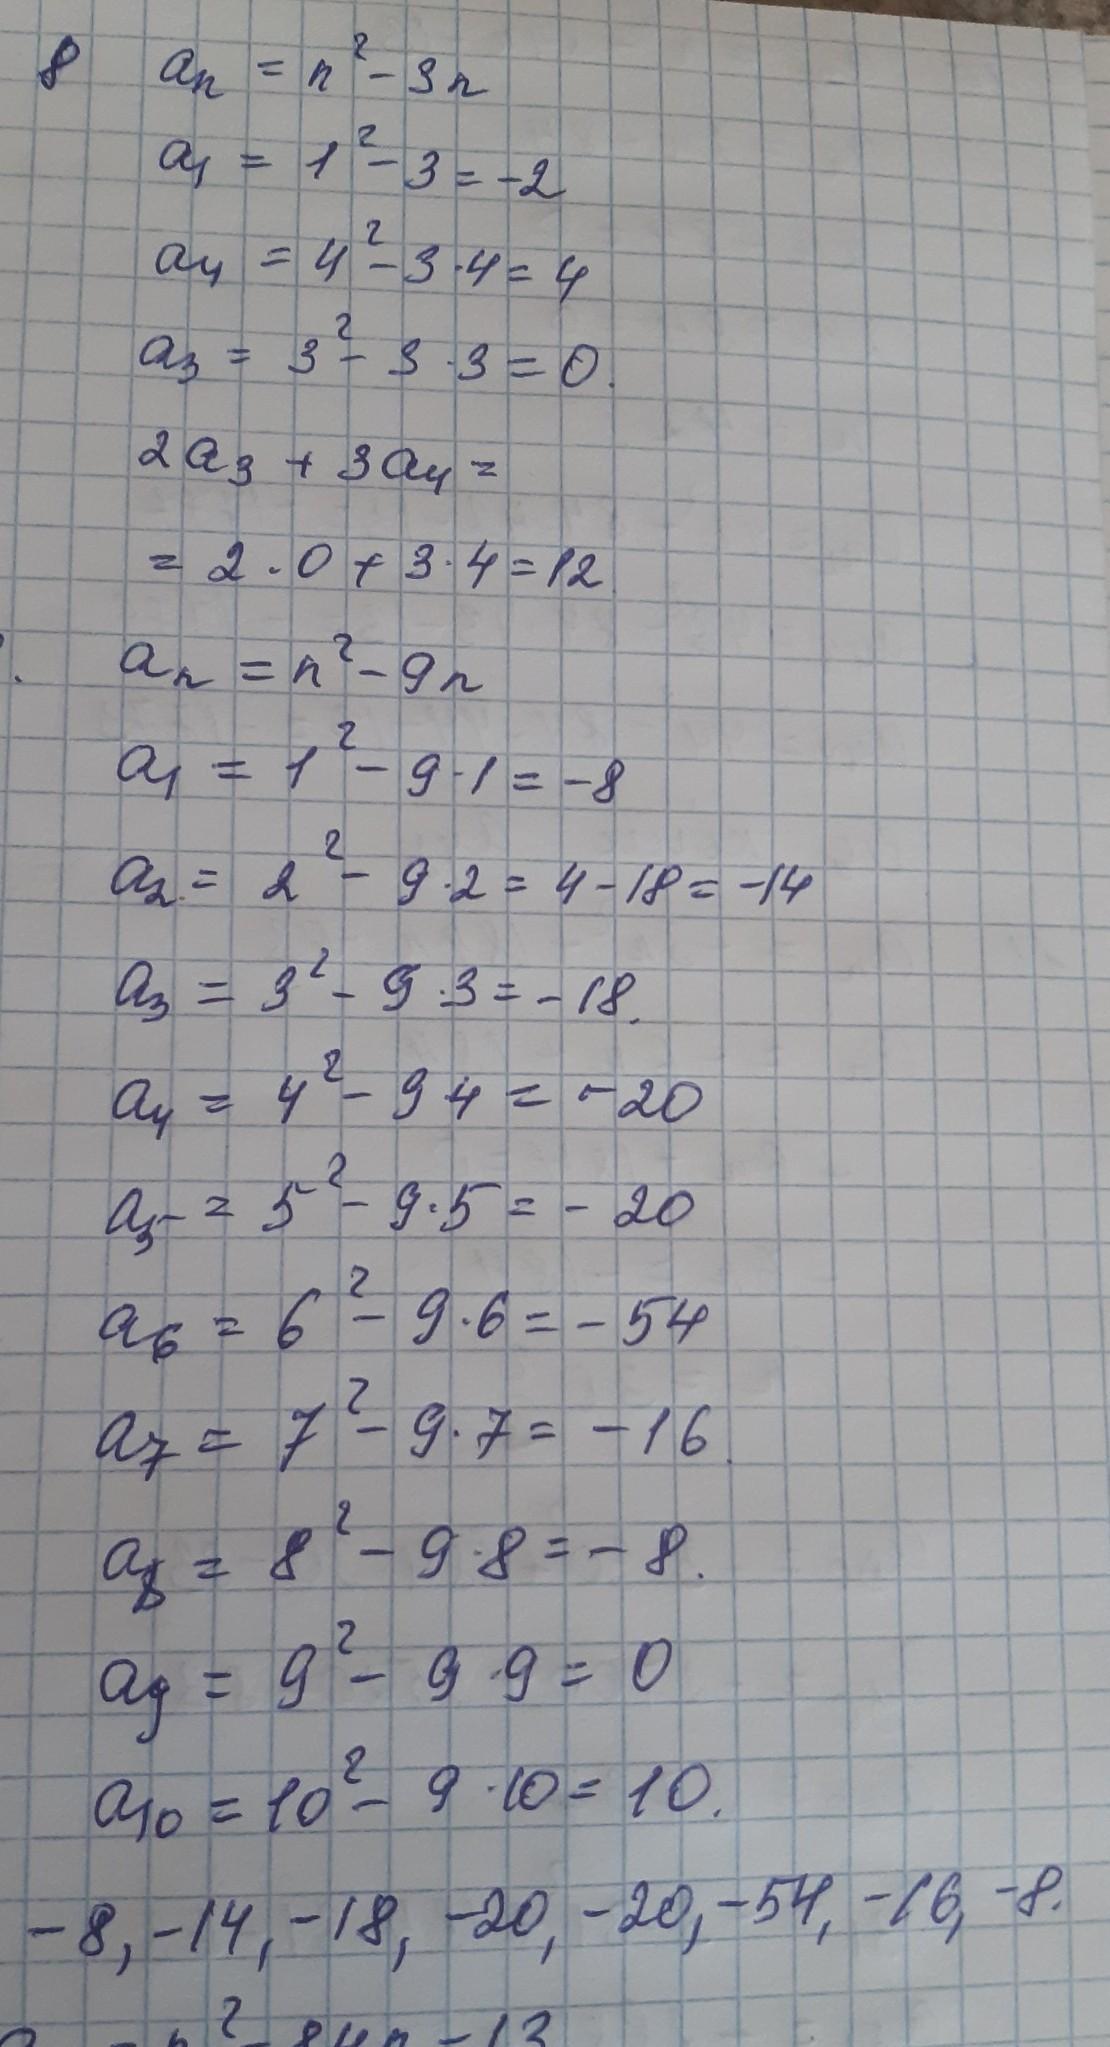 8 aₙ = n² - 3n
a₁ = 1² - 3 = -2
a₄ = 4² - 3·4 = 4
a₃ = 3² - 3·3 = 0.
2a₃ + 3a₄ =
= 2·0 + 3·4 = 12
aₙ = n² - 9n
a₁ = 1² - 9·1 = -8
a₂ = 2² - 9·2 = 4 - 18 = -14
a₃ = 3² - 9·3 = -18.
a₄ = 4² - 9 4 = -20
a₅ = 5² - 9·5 = -20
a₆ = 6² - 9·6 = -54
a₇ = 7² - 9·7 = -16.
a₈ = 8² - 9·8 = -8.
a₉ = 9² - 9·9 = 0
a₁₀ = 10² - 9·10 = 10.
-8, -14, -18, -20, -20, -54, -16, -8.